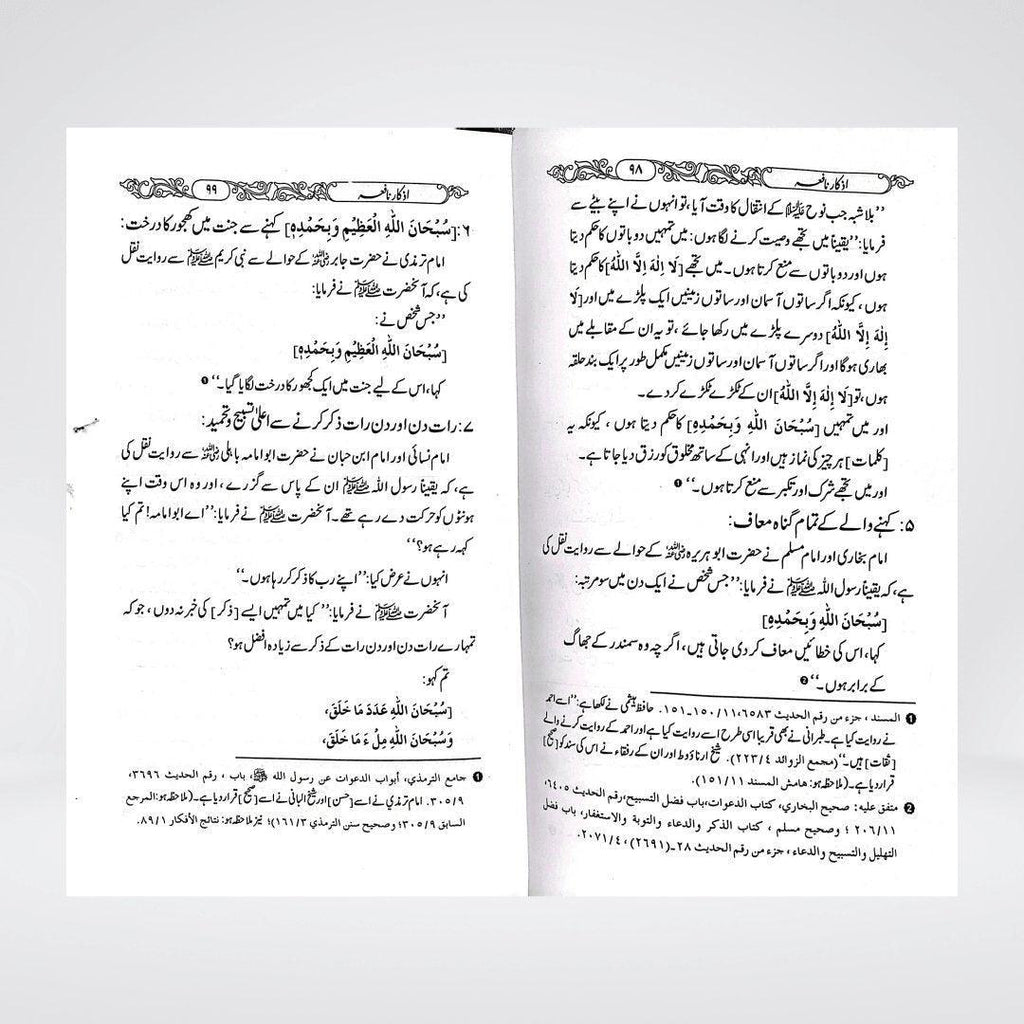 اذکار نافعہ
۹۸
’’بلاشبہ جب نوح ﷺ کے انتقال کا وقت آیا، تو انہوں نے اپنے بیٹے سے
فرمایا: ’’یقیناً میں تجھے وصیت کرنے لگا ہوں: میں تمہیں دو باتوں کا حکم دیتا
ہوں اور دو باتوں سے منع کرتا ہوں۔ میں تجھے [لَا إِلٰهَ إِلَّا اللّٰهُ] کا حکم دیتا
ہوں، کیونکہ اگر ساتوں آسمان اور ساتوں زمینیں ایک پلڑے میں اور [لَا
إِلٰهَ إِلَّا اللّٰهُ] دوسرے پلڑے میں رکھا جائے، تو یہ ان کے مقابلے میں
بھاری ہوگا اور اگر ساتوں آسمان اور ساتوں زمینیں مکمل طور پر ایک بند حلقہ
ہوں، تو [لَا إِلٰهَ إِلَّا اللّٰهُ] ان کے ٹکڑے ٹکڑے کر دے۔
اور میں تمہیں [سُبْحَانَ اللّٰهِ وَبِحَمْدِهٖ] کا حکم دیتا ہوں، کیونکہ یہ
[کلمات] ہر چیز کی نماز ہیں اور انہی کے ساتھ مخلوق کو رزق دیا جاتا ہے۔
اور میں تجھے شرک اور تکبر سے منع کرتا ہوں۔‘‘ ❶
۵: کہنے والے کے تمام گناہ معاف:
امام بخاری اور امام مسلم نے حضرت ابو ہریرہ رضی اللہ عنہ کے حوالے سے روایت نقل کی
ہے، کہ یقیناً رسول اللہ ﷺ نے فرمایا: ’’جس شخص نے ایک دن میں سو مرتبہ:
[سُبْحَانَ اللّٰهِ وَبِحَمْدِهٖ]
کہا، اس کی خطائیں معاف کر دی جاتی ہیں، اگرچہ وہ سمندر کے جھاگ
کے برابر ہوں۔‘‘ ❷
❶ المسند، جزء من رقم الحدیث ۶۵۸۳، ۱۱/۱۵۰۔۱۵۱. حافظ ہیثمی نے لکھا ہے: ’’اسے احمد
نے روایت کیا ہے۔ طبرانی نے بھی قریباً اسی طرح اسے روایت کیا ہے اور احمد کے روایت کرنے والے
[ثقات] ہیں۔‘‘ (مجمع الزوائد ۴/۲۲۳). شیخ ارناؤوط اور ان کے رفقاء نے اس کی سند کو [صحیح]
قرار دیا ہے۔ (ملاحظہ ہو: هامش المسند ۱۱/۱۵۱).
❷ متفق علیه: صحیح البخاري، کتاب الدعوات، باب فضل التسبیح، رقم الحدیث ۶۴۰۵،
۱۱/۲۰۶ ؛ وصحیح مسلم، کتاب الذکر والدعاء والتوبة والاستغفار، باب فضل
التهلیل والتسبیح والدعاء، جزء من رقم الحدیث ۲۸۔(۲۶۹۱)، ۴/۲۰۷۱.
اذکار نافعہ
۹۹
۶: [سُبْحَانَ اللّٰهِ الْعَظِيْمِ وَبِحَمْدِهٖ] کہنے سے جنت میں کھجور کا درخت:
امام ترمذی نے حضرت جابر رضی اللہ عنہ کے حوالے سے نبی کریم ﷺ سے روایت نقل
کی ہے، کہ آنحضرت ﷺ نے فرمایا:
’’جس شخص نے:
[سُبْحَانَ اللّٰهِ الْعَظِيْمِ وَبِحَمْدِهٖ]
کہا، اس کے لیے جنت میں ایک کھجور کا درخت لگایا گیا۔‘‘ ❶
۷: رات دن اور دن رات ذکر کرنے سے اعلیٰ تسبیح و تحمید:
امام نسائی اور امام ابن حبان نے حضرت ابو امامہ باہلی رضی اللہ عنہ سے روایت نقل کی
ہے، کہ یقیناً رسول اللہ ﷺ ان کے پاس سے گزرے، اور وہ اس وقت اپنے
ہونٹوں کو حرکت دے رہے تھے۔ آنحضرت ﷺ نے فرمایا: ’’اے ابو امامہ! تم کیا
کہہ رہے ہو؟‘‘
انہوں نے عرض کیا: ’’اپنے رب کا ذکر کر رہا ہوں۔‘‘
آنحضرت ﷺ نے فرمایا: ’’کیا میں تمہیں ایسے [ذکر] کی خبر نہ دوں، جو کہ
تمہارے رات دن اور دن رات کے ذکر سے زیادہ افضل ہو؟
تم کہو:
[سُبْحَانَ اللّٰهِ عَدَدَ مَا خَلَقَ،
وَسُبْحَانَ اللّٰهِ مِلْءَ مَا خَلَقَ،
❶ جامع الترمذي، أبواب الدعوات عن رسول الله ﷺ، باب، رقم الحدیث ۳۶۹۶،
۹/۳۰۵. امام ترمذی نے اسے [حسن] اور شیخ البانی نے اسے [صحیح] قرار دیا ہے۔ (ملاحظہ ہو: المرجع
السابق ۹/۳۰۵؛ وصحیح سنن الترمذي ۳/۱۶۱)؛ نیز ملاحظہ ہو: نتائج الأفکار ۱/۸۹.